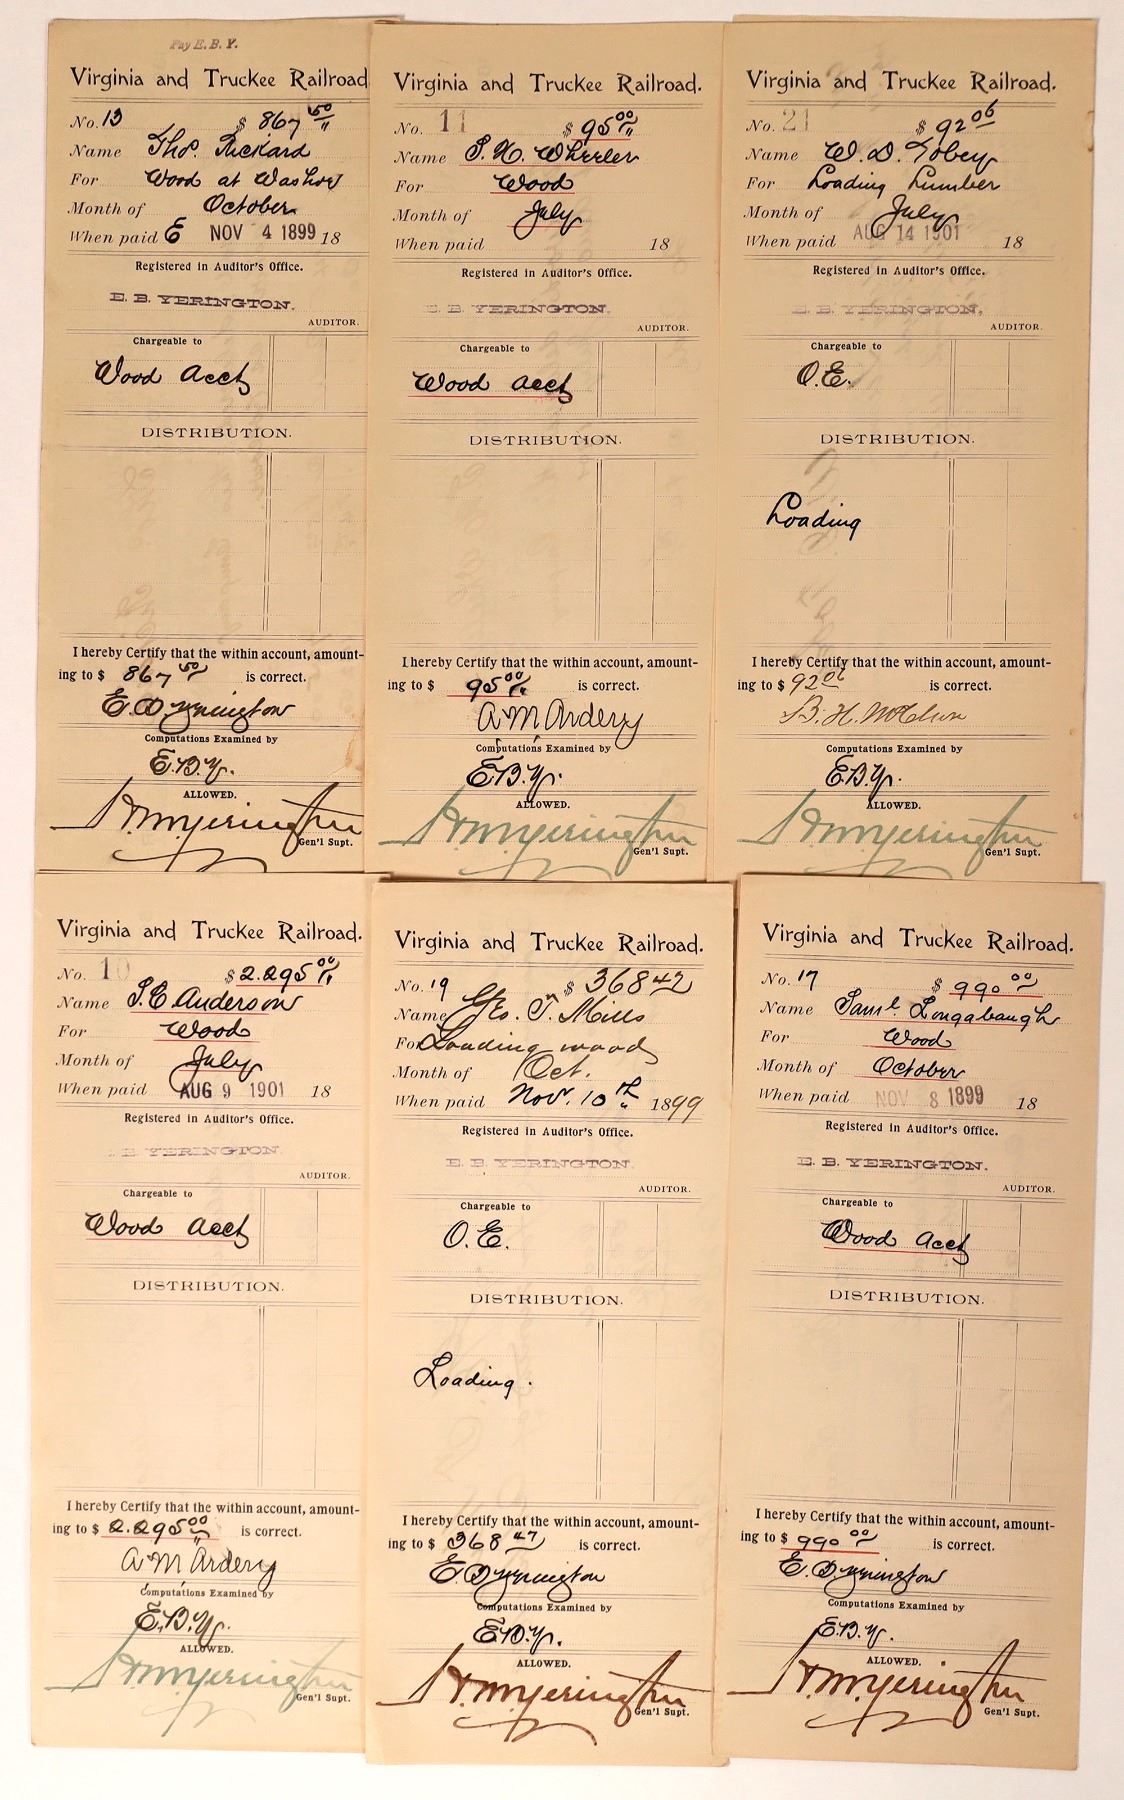 Pay E. B. Y.
Virginia and Truckee Railroad.
No. 13 $ 867 50/"
Name Thos. Rickard
For Wood at Washoe
Month of October
When paid E NOV 4 1899 18
Registered in Auditor's Office.
E. B. YERINGTON.
AUDITOR.
Chargeable to
Wood Acct
DISTRIBUTION.
I hereby Certify that the within account, amount-
ing to $ 867 50 is correct.
E. B. Yerington
Computations Examined by
E.B.Y.
ALLOWED.
H. M. Yerington
Gen'l Supt.
Virginia and Truckee Railroad.
No. 11 $ 95 00
Name Wheeler
For Wood
Month of July
When paid 18
Registered in Auditor's Office.
E. B. YERINGTON.
AUDITOR.
Chargeable to
Wood acct
DISTRIBUTION.
I hereby Certify that the within account, amount-
ing to $ 95 00 is correct.
A M Ardery
Computations Examined by
E.B.Y.
ALLOWED.
H. M. Yerington
Gen'l Supt.
Virginia and Truckee Railroad.
No. 21 $ 92 06
Name W. D. Tobey
For Loading Lumber
Month of July
When paid AUG 14 1901 18
Registered in Auditor's Office.
E. B. YERINGTON.
AUDITOR.
Chargeable to
O.E.
DISTRIBUTION.
Loading
I hereby Certify that the within account, amount-
ing to $ 92 06 is correct.
B. H.
Computations Examined by
E.B.Y.
ALLOWED.
H. M. Yerington
Gen'l Supt.
Virginia and Truckee Railroad.
No. 10 $ 2.295 00
Name Anderson
For Wood
Month of July
When paid AUG 9 1901 18
Registered in Auditor's Office.
E. B. YERINGTON.
AUDITOR.
Chargeable to
Wood acct
DISTRIBUTION.
I hereby Certify that the within account, amount-
ing to $ 2.295 00 is correct.
A M Ardery
Computations Examined by
E.B.Y.
ALLOWED.
H. M. Yerington
Gen'l Supt.
Virginia and Truckee Railroad.
No. 19 $ 368 47
Name Geo. T. Mills
For Loading wood
Month of Oct.
When paid Nov. 10 th 1899
Registered in Auditor's Office.
E. B. YERINGTON.
AUDITOR.
Chargeable to
O.E.
DISTRIBUTION.
Loading.
I hereby Certify that the within account, amount-
ing to $ 368 47 is correct.
E. B. Yerington
Computations Examined by
E.B.Y.
ALLOWED.
H. M. Yerington
Gen'l Supt.
Virginia and Truckee Railroad.
No. 17 $ 990 00
Name Saml. Longabaugh
For Wood
Month of October
When paid NOV 8 1899 18
Registered in Auditor's Office.
E. B. YERINGTON.
AUDITOR.
Chargeable to
Wood acct
DISTRIBUTION.
I hereby Certify that the within account, amount-
ing to $ 990 00 is correct.
E. B. Yerington
Computations Examined by
E.B.Y.
ALLOWED.
H. M. Yerington
Gen'l Supt.